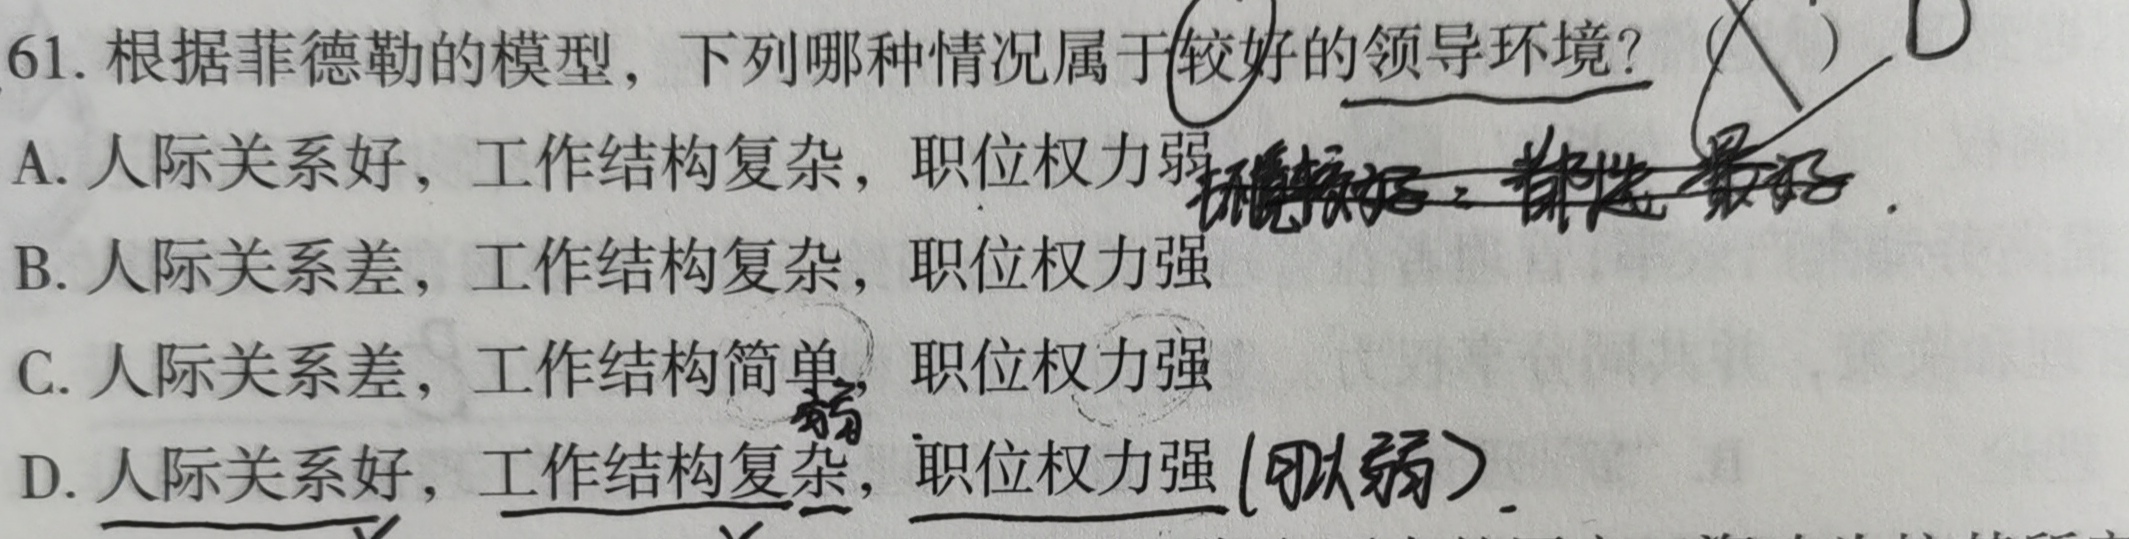 61. 根据菲德勒的模型，下列哪种情况属于较好的领导环境？（ ） D
A. 人际关系好，工作结构复杂，职位权力弱
B. 人际关系差，工作结构复杂，职位权力强
C. 人际关系差，工作结构简单，职位权力强
弱
D. 人际关系好，工作结构复杂，职位权力强（弱）.